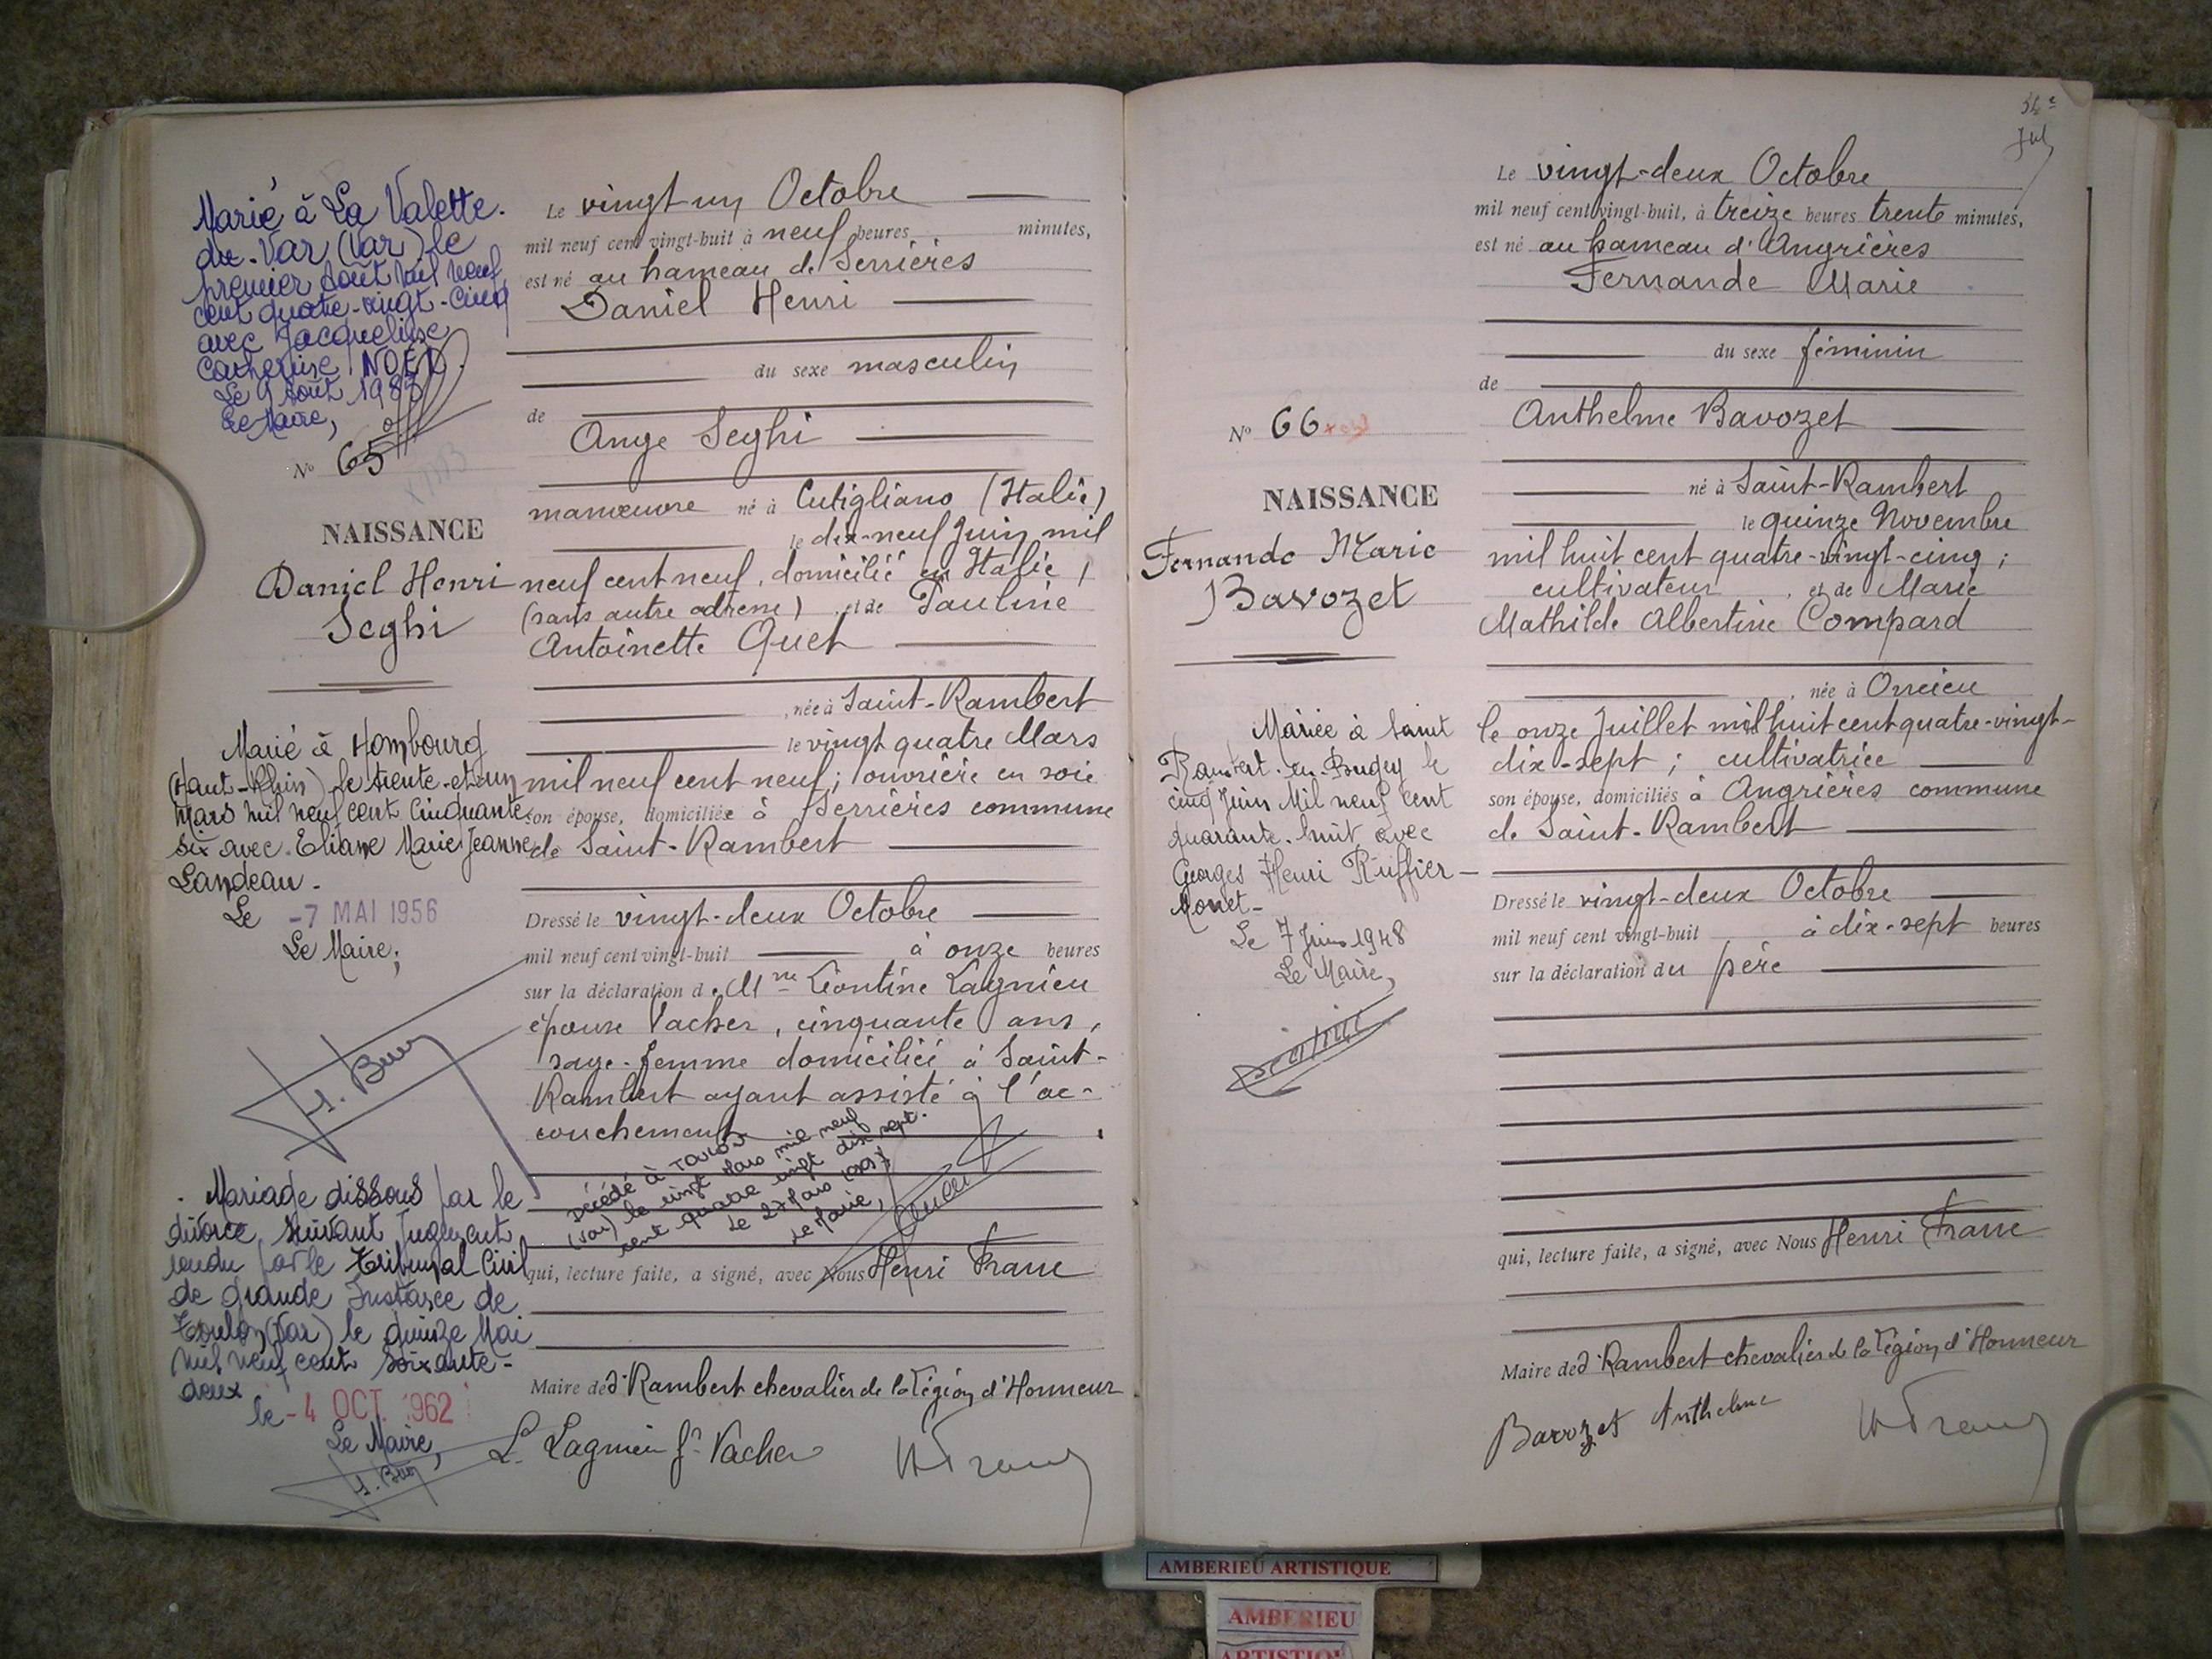 Marié à La Valette.
du-Var (Var) le
premier août mil neuf
cent quatre-vingt-cinq
avec Jacqueline
Catherine NOËL.
Le 9 Août 1985
Le Maire,
N° 65
NAISSANCE
Daniel Henri
Seghi
Marié à Hombourg
(Haut-Rhin) le trente-et-un
Mars mil neuf cent cinquante
six avec Eliane Marie Jeanne
Landeau.
Le -7 MAI 1956
Le Maire,
Mariage dissous par le
divorce suivant Jugement
rendu par le Tribunal Civil
de grande Instance de
Toulon (Var) le quinze Mai
mil neuf cent soixante-
deux
le -4 OCT. 1962
Le Maire,
Le vingt un Octobre
mil neuf cent vingt-huit à neuf heures minutes,
est né au hameau de Serrières
Daniel Henri
du sexe masculin
de
Ange Seghi
manœuvre né à Cutigliano (Italie)
le dix-neuf Juin mil
neuf cent neuf, domicilié en Italie,
(sans autre adresse) et de Pauline
Antoinette Quet
, née à Saint-Rambert
le vingt quatre Mars
mil neuf cent neuf; ouvrière en soie
son épouse, domiciliée à Serrières commune
de Saint-Rambert
Dressé le vingt-deux Octobre
mil neuf cent vingt-huit à onze heures
sur la déclaration de Mme Léontine Lagnieu
épouse Vacher, cinquante ans,
sage-femme domiciliée à Saint-
Rambert ayant assisté à l'ac-
couchement
Décédé à TOULON
(Var) le vingt Mars mil neuf
cent quatre vingt dix sept.
Le 27 Mars 1997
Le Maire,
qui, lecture faite, a signé, avec Nous Henri Franc
Maire de St Rambert chevalier de la Légion d'Honneur
L. Lagnieu fe Vacher
H Franc
Le vingt-deux Octobre
mil neuf cent vingt-huit, à treize heures trente minutes,
est né au hameau d'Angrières
Fernande Marie
du sexe féminin
de
Anthelme Bavozet
né à Saint-Rambert
le quinze Novembre
mil huit cent quatre-vingt-cinq;
cultivateur , et de Marie
Mathilde Albertine Compard
, née à Oncieu
le onze Juillet mil huit cent quatre-vingt-
dix-sept; cultivatrice
son épouse, domiciliés à Angrières commune
de Saint-Rambert
Dressé le vingt-deux Octobre
mil neuf cent vingt-huit à dix-sept heures
sur la déclaration du père
qui, lecture faite, a signé, avec Nous Henri Franc
Maire de St Rambert chevalier de la Légion d'Honneur
Bavozet Anthelme
H Franc
N° 66
NAISSANCE
Fernande Marie
Bavozet
Mariée à Saint
Rambert-en-Bugey le
cinq Juin Mil neuf cent
quarante-huit avec
Georges Henri Ruffier-
Monet-
Le 7 Juin 1948
Le Maire,
AMBERIEU ARTISTIQUE
AMBERIEU
ARTISTIQUE